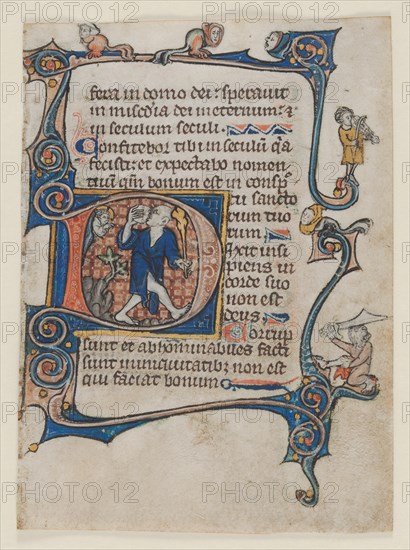 fera in domo dei: speravit
in mis̃c̃dia dei in eternum: ⁊
in seculum seculi.
Confitebor tibi in seculum q̃a
fecisti: et expectabo nomen
tuum q̃m bonum est in consp̃
tu sancto
rum tuo
rum.
Dixit insi
piens in
corde suo
non est
deus. Corrup
sunt et abhominabiles facti
sunt in iniquitatibz non est
qui faciat bonum
PHOTO 12